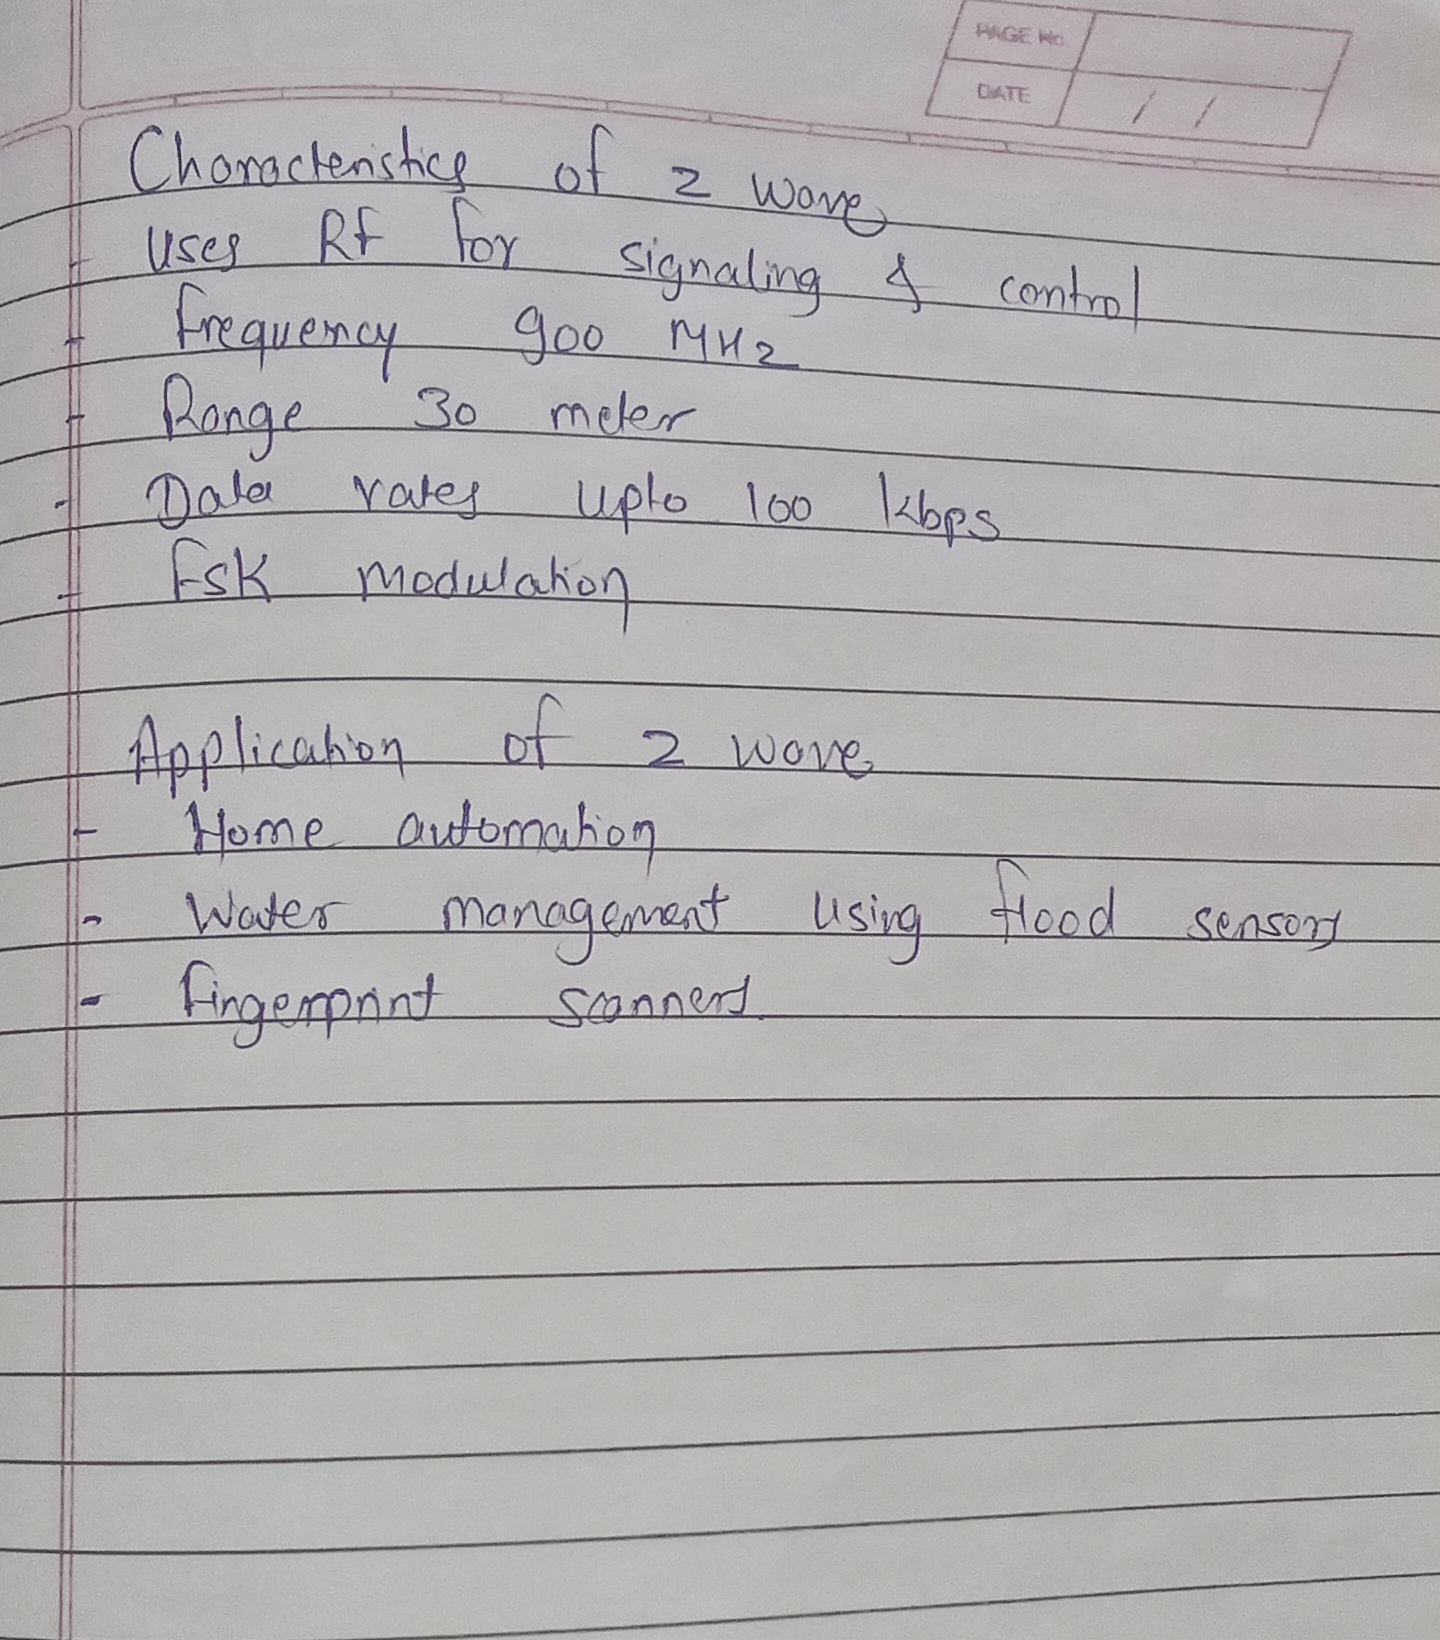 PAGE No.
DATE / /
Characteristics of z wave
- Uses Rf for signaling & control
- frequency 900 MHz
- Range 30 meter
- Data rates upto 100 kbps
- FSK modulation
Application of z wave
- Home automation
- Water management using flood sensors
- fingerprint scanners.